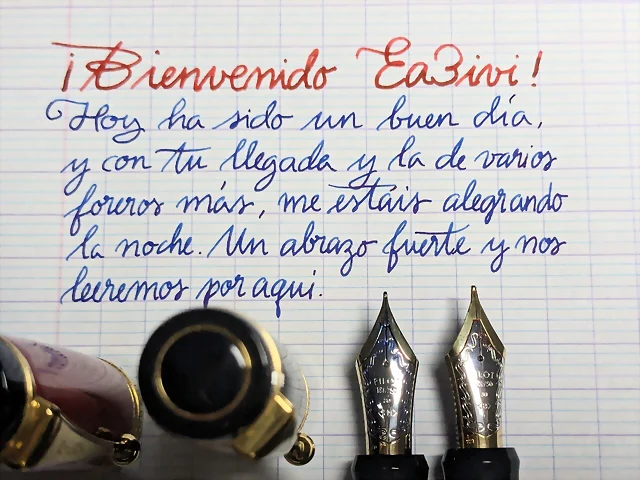 ¡Bienvenido Ea3ivi!
Hoy ha sido un buen día,
y con tu llegada y la de varios
foreros más, me estáis alegrando
la noche. Un abrazo fuerte y nos
leeremos por aquí.